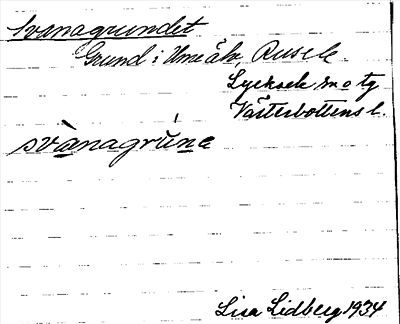 Svanagrundet
Grund i Umeälv, Rusele
Lycksele m o tg
Västerbottens l.
svànagrúne
Lisa Lidberg 1934